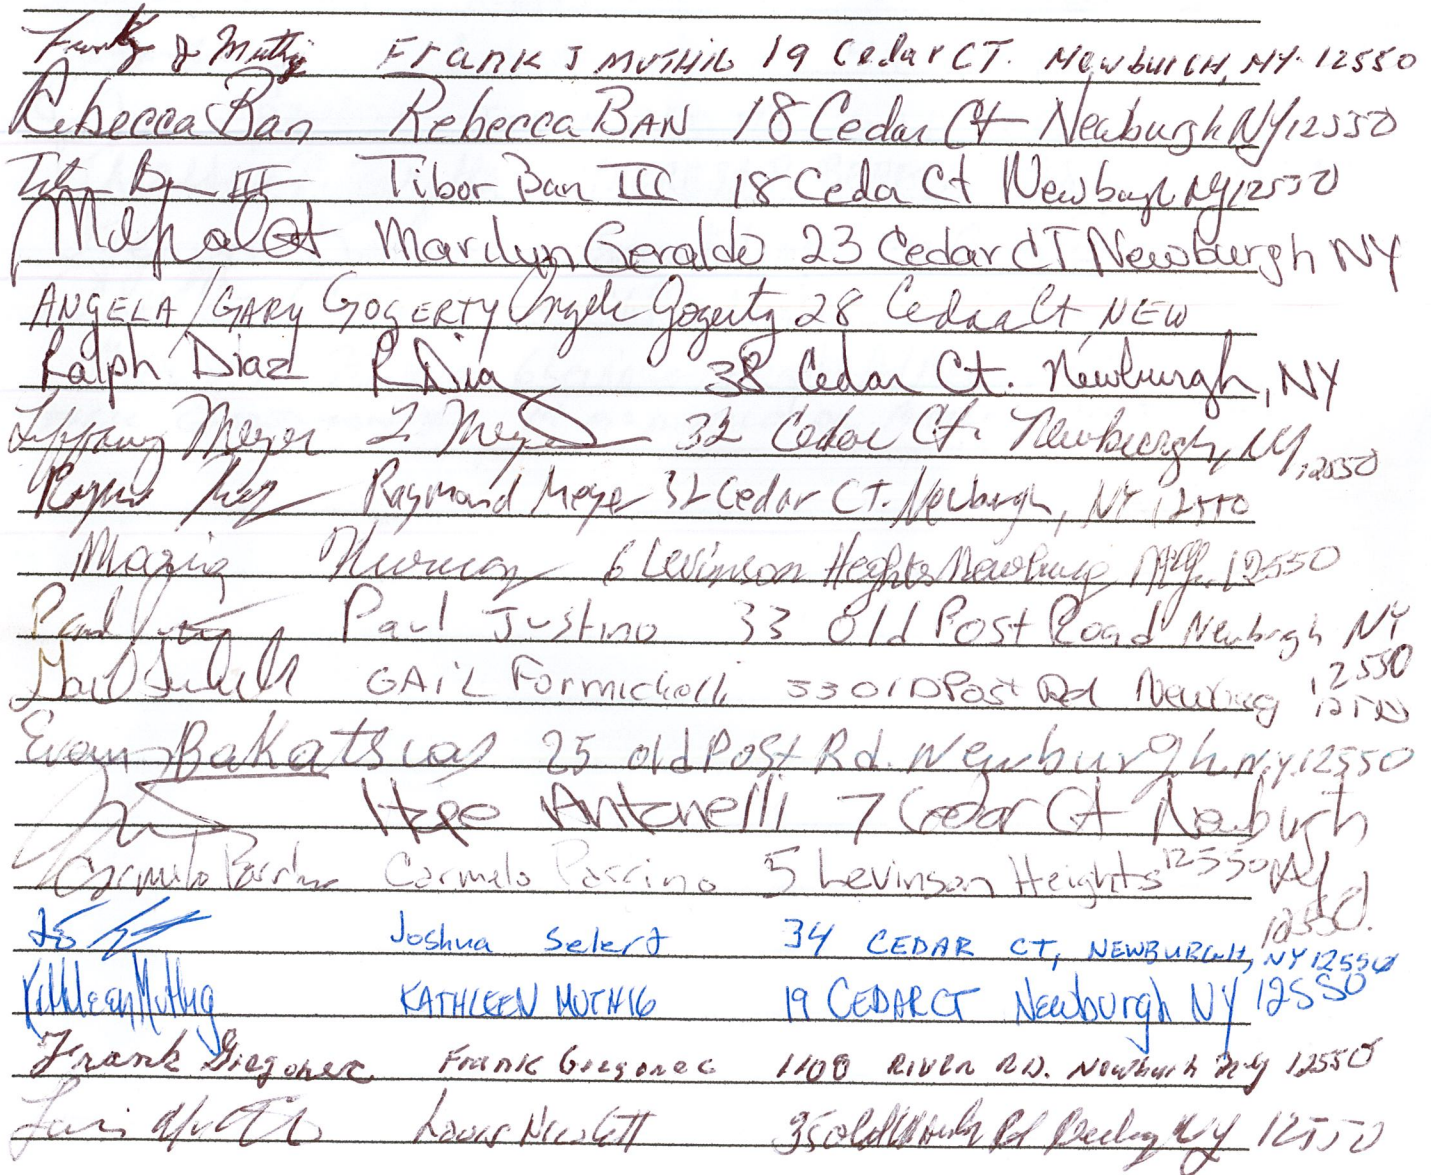 Frank J Muthig Frank J MUTHIG 19 Cedar CT. Newburgh, NY. 12550
Rebecca Ban Rebecca BAN 18 Cedar Ct Newburgh NY 12550
Tibor Ban III 18 Ceda Ct Newburgh NY 12550
Marilyn Geraldo 23 Cedar CT Newburgh NY
ANGELA/GARY GOGERTY Angela Gogerty 28 Cedar Ct NEW
Ralph Diaz R Dia 38 Cedar Ct. Newburgh, NY
Meyer L Meyer 32 Cedar Ct. Newburgh, NY, 12550
Raymond Meyer 32 Cedar Ct. Newburgh, NY 12550
6 Levinson Heights Newburg NY. 12550
Paul Justino 33 Old Post Road Newburgh NY
12550
GAIL Formicholli 33 OlD Post Rd Newburg 12550
Evan Bakatsias 25 old Post Rd. Newburgh. N.Y. 12550
Hope Antonelli 7 Cedar Ct Newburgh
Carmelo Parrino Carmelo Parrino 5 Levinson Heights 12550 NY
12550.
Joshua Selert 34 CEDAR CT, NEWBURGH, NY 12550
Kathleen Muthig KATHLEEN MUTHIG 19 CEDAR CT Newburgh NY 12550
Frank Gregorec Frank Gregorec 1100 RIVER RD. Newburgh NY 12550
Louis Rd NY 12550